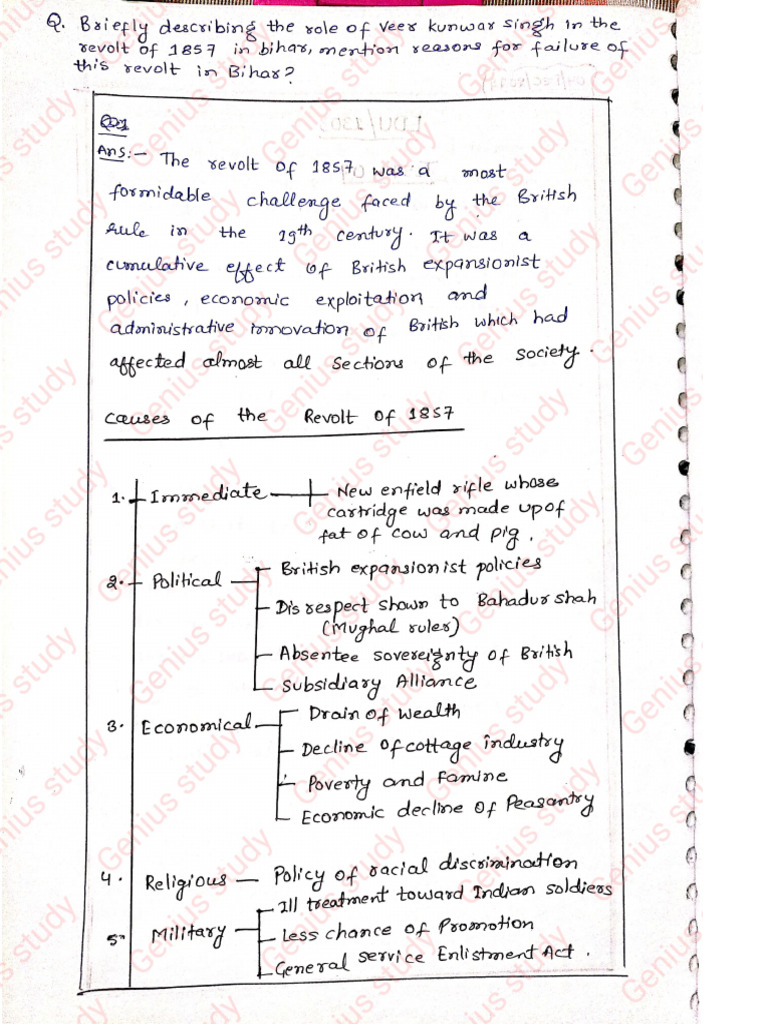 Q. Briefly describing the role of Veer Kunwar Singh in the
revolt of 1857 in bihar, mention reasons for failure of
this revolt in Bihar?
Ans:- The revolt of 1857 was a most
formidable challenge faced by the British
Rule in the 19th century. It was a
cumulative effect of British expansionist
policies, economic exploitation and
administrative innovation of British which had
affected almost all Sections of the society.
Causes of the Revolt of 1857
1. Immediate — New enfield rifle whose
cartridge was made upof
fat of cow and pig.
2. Political — British expansionist policies
Disrespect shown to Bahadur shah
(Mughal ruler)
Absentee sovereignty of British
Subsidiary Alliance
3. Economical — Drain of wealth
Decline of cottage industry
Poverty and famine
Economic decline of Peasantry
4. Religious — Policy of racial discrimination
5. Military — Ill treatment toward Indian soldiers
Less chance of Promotion
General service Enlistment Act.
Genius study